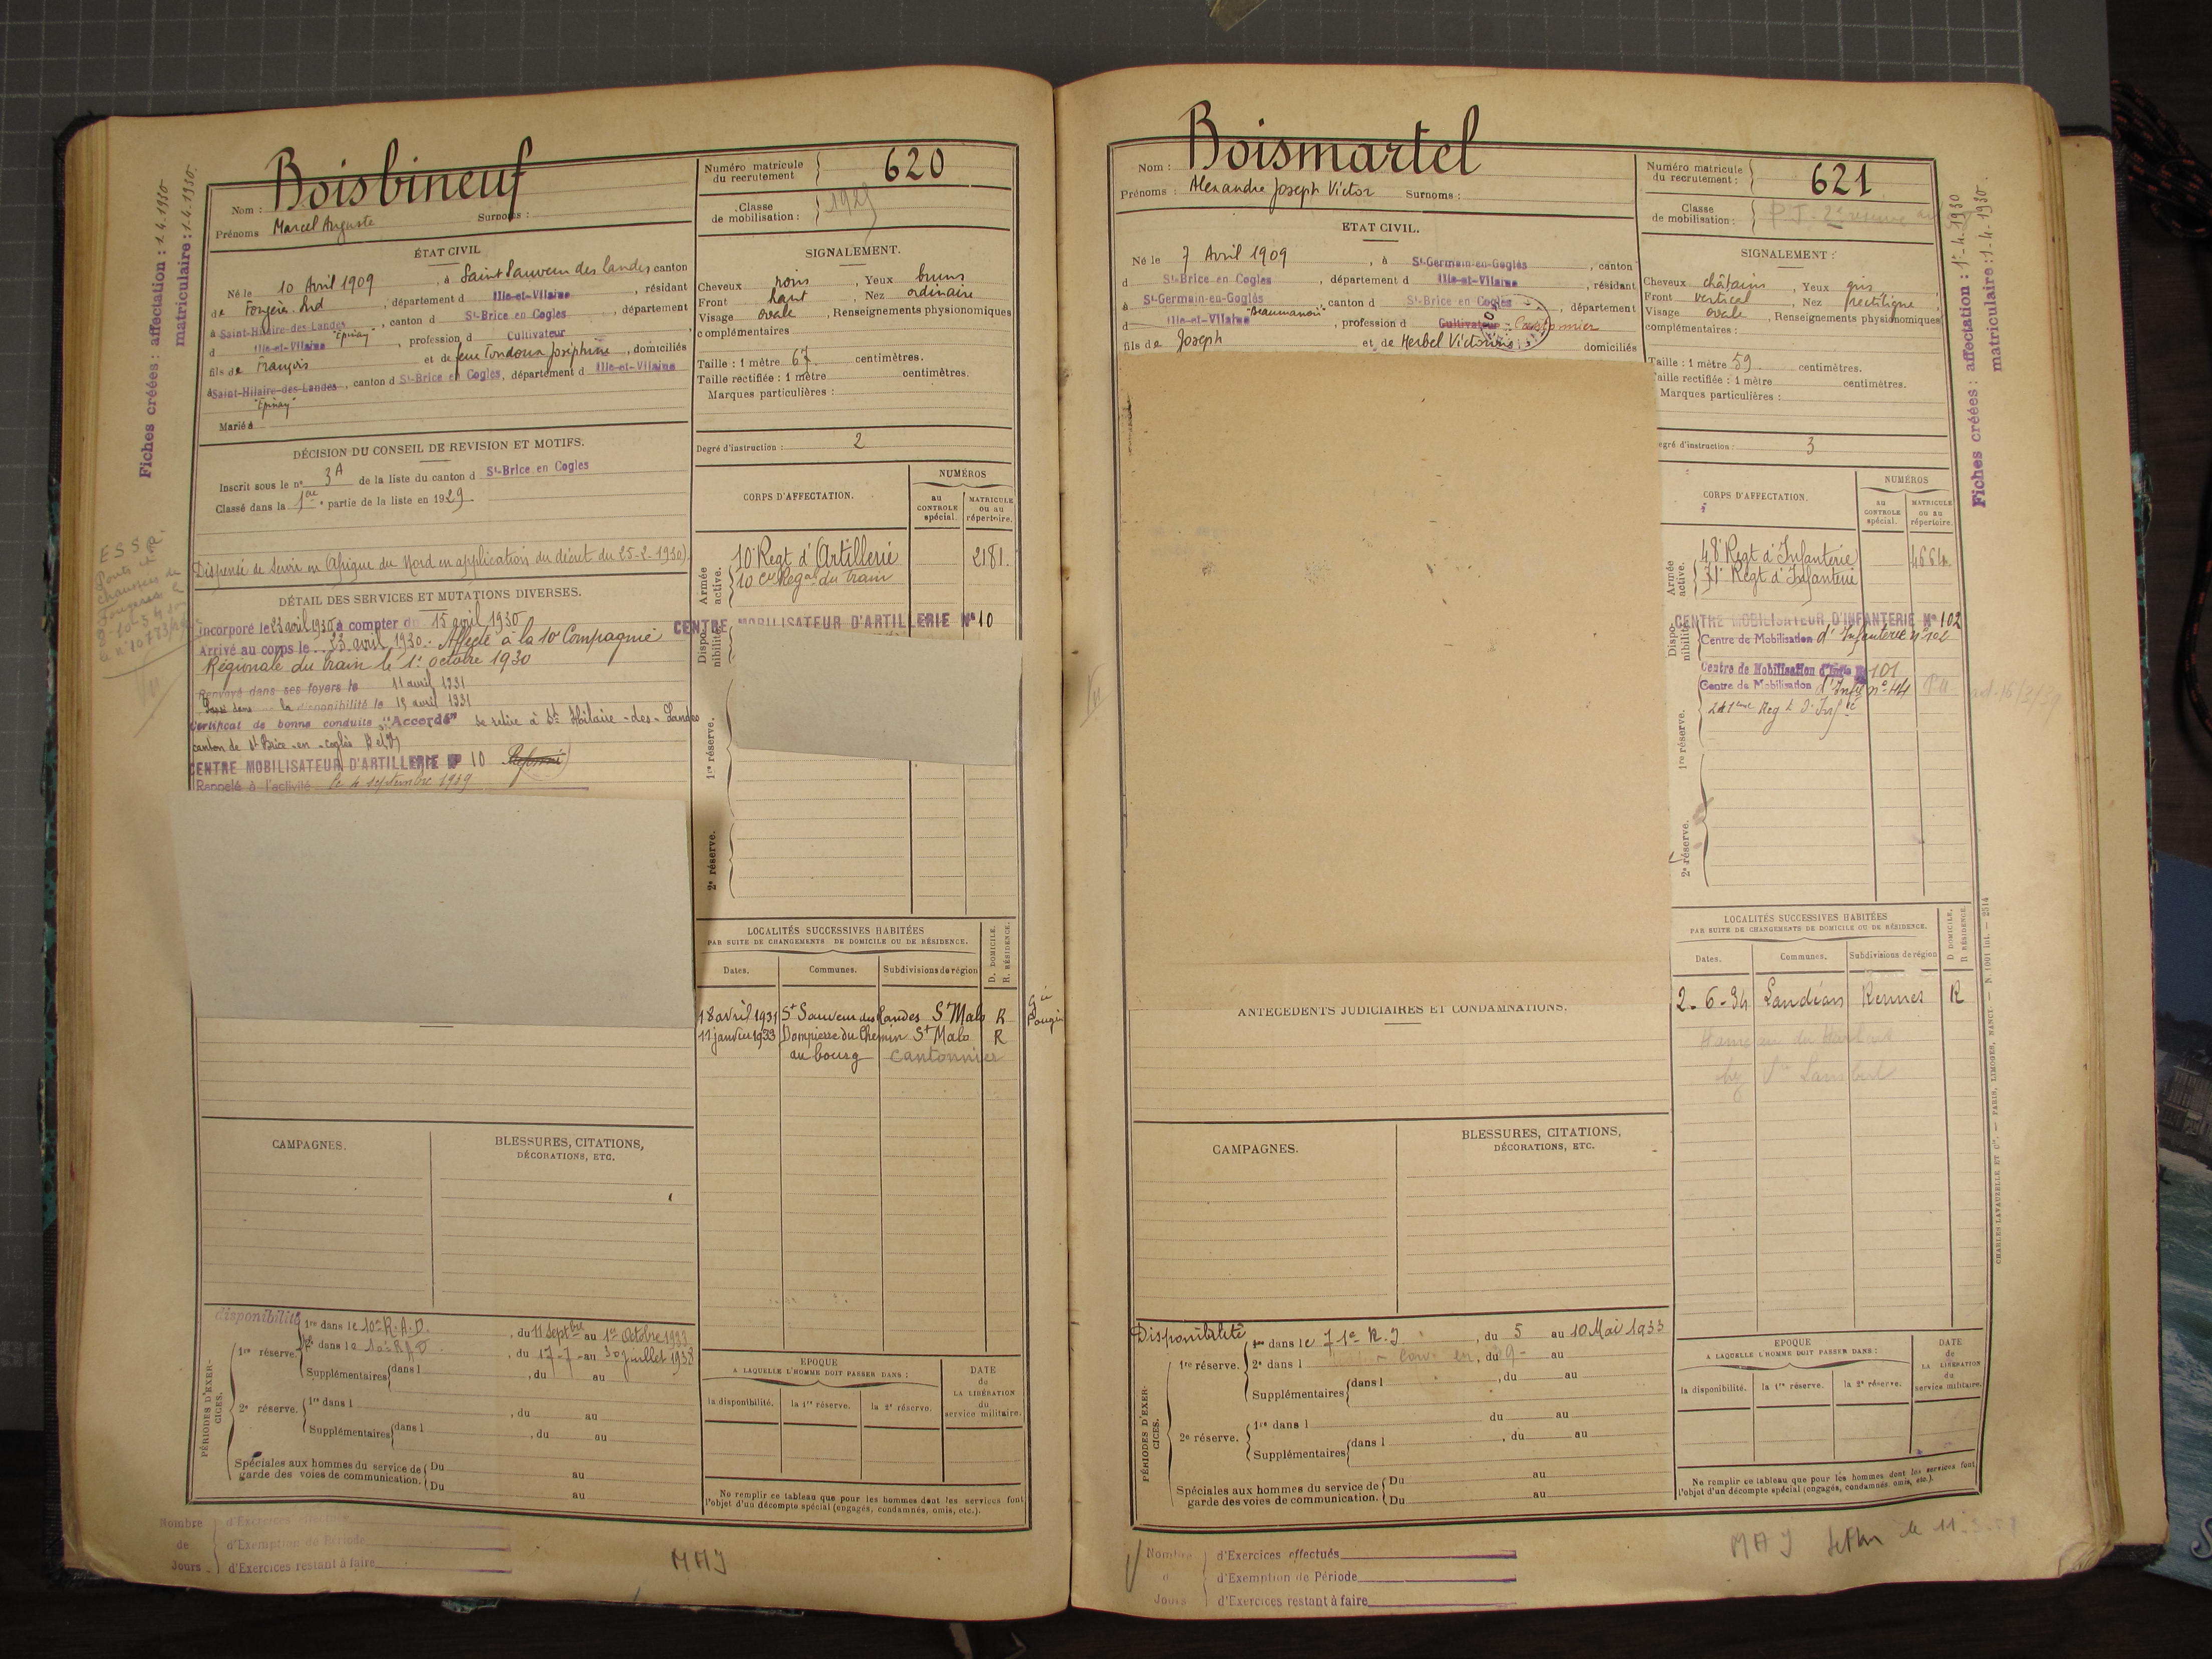 Fiches créées : affectation : 1.4.1930
matriculaire : 1.4.1930.
Nom : Boisbineuf
Prénoms Marcel Auguste Surnoms :
Numéro matricule du recrutement 620
Classe de mobilisation : 1929
ÉTAT CIVIL
Né le 10 Avril 1909, à Saint Sauveur des landes canton
de Fougères Sud, département d Ille-et-Vilaine, résidant
à Saint-Hilaire-des-Landes, canton d St-Brice en Cogles, département
d Ille-et-Vilaine "Epinay", profession d Cultivateur
fils de François et de feue Tondoux Joséphine, domiciliés
à Saint-Hilaire-des-Landes, canton d St-Brice en Cogles, département d Ille-et-Vilaine
"Epinay"
Marié à
SIGNALEMENT.
Cheveux noirs, Yeux bruns
Front haut, Nez ordinaire
Visage ovale, Renseignements physionomiques
complémentaires
Taille : 1 mètre 67 centimètres.
Taille rectifiée : 1 mètre centimètres.
Marques particulières :
Degré d'instruction : 2
DÉCISION DU CONSEIL DE REVISION ET MOTIFS.
Inscrit sous le n° 3A de la liste du canton d St-Brice en Cogles
Classé dans la 1ère partie de la liste en 1929
Dispensé de servir en Afrique du Nord en application du décret du 25-2-1930).
DÉTAIL DES SERVICES ET MUTATIONS DIVERSES.
Incorporé le 23 avril 1930 à compter du 15 avril 1930
Arrivé au corps le 23 avril 1930. Affecté à la 10e Compagnie
Régionale du train le 1er octobre 1930
Renvoyé dans ses foyers le 11 avril 1931
Passé dans la disponibilité le 15 avril 1931
Certificat de bonne conduite "Accordé" se retire à St Hilaire-des-Landes
canton de St Brice-en-coglès
CENTRE MOBILISATEUR D'ARTILLERIE N° 10
Rappelé à l'activité le 4 septembre 1939
CORPS D'AFFECTATION.
NUMÉROS
au CONTROLE spécial.
MATRICULE ou au répertoire.
Armée active.
10e Regt d'Artillerie 2181.
10e Cie Regale du train
Disponibilité
CENTRE MOBILISATEUR D'ARTILLERIE N° 10
1re réserve.
2e réserve.
LOCALITÉS SUCCESSIVES HABITÉES
PAR SUITE DE CHANGEMENTS DE DOMICILE OU DE RÉSIDENCE.
Dates. Communes. Subdivisions de région D. DOMICILE. R. RÉSIDENCE.
18 avril 1931 St Sauveur des Landes St Malo R
11 janvier 1933 Dompierre du Chemin St Malo R
au bourg cantonnier
CAMPAGNES.
BLESSURES, CITATIONS,
DÉCORATIONS, ETC.
PÉRIODES D'EXERCICES.
disponibilité
1re réserve. 1re dans le 10e R.A.D., du 11 Septbre au 1er Octobre 1933
2e dans le 10e R A D, du 17-7- au 30 juillet 1938
Supplémentaires dans l , du au
2e réserve. 1re dans l , du au
Supplémentaires dans l , du au
Spéciales aux hommes du service de garde des voies de communication. Du au
Du au
EPOQUE
A LAQUELLE L'HOMME DOIT PASSER DANS :
la disponibilité. la 1re réserve. la 2e réserve.
DATE de LA LIBÉRATION du service militaire.
Ne remplir ce tableau que pour les hommes dont les services font
l'objet d'un décompte spécial (engagés, condamnés, omis, etc.).
Nombre de Jours
d'Exercices effectués
d'Exemption de Période
d'Exercices restant à faire
MAJ
Nom : Boismartel
Prénoms : Alexandre Joseph Victor Surnoms :
Numéro matricule du recrutement : 621
Classe de mobilisation :
ETAT CIVIL.
Né le 7 Avril 1909, à St-Germain-en-Coglès, canton
d St-Brice en Cogles, département d Ille-et-Vilaine, résidant
à St-Germain-en-Coglès, canton d St-Brice en Cogles, département
d Ille-et-Vilaine "Beaumanoir", profession d Cultivateur - Cantonnier
fils de Joseph et de Herbel Victorine domiciliés
SIGNALEMENT :
Cheveux châtains, Yeux gris
Front vertical, Nez rectiligne
Visage ovale, Renseignements physionomiques
complémentaires :
Taille : 1 mètre 59 centimètres.
Taille rectifiée : 1 mètre centimètres.
Marques particulières :
egré d'instruction : 3
Fiches créées : affectation : 1-4-1930
matriculaire : 1-4-1930.
CORPS D'AFFECTATION.
NUMÉROS
au CONTROLE spécial.
MATRICULE ou au répertoire.
Armée active.
48e Regt d'Infanterie 4664.
71e Regt d'Infanterie
Disponibilité
CENTRE MOBILISATEUR D'INFANTERIE N° 102
Centre de Mobilisation d'Infanterie n° 102
Centre de Mobilisation d'Infie 101
Centre de Mobilisation d'Infie n° 44
241ème Regt d'Infie
1re réserve.
2e réserve.
LOCALITÉS SUCCESSIVES HABITÉES
PAR SUITE DE CHANGEMENTS DE DOMICILE OU DE RÉSIDENCE.
Dates. Communes. Subdivisions de région D. DOMICILE. R RÉSIDENCE.
2-6-34 Landéan Rennes R
ANTECEDENTS JUDICIAIRES ET CONDAMNATIONS.
CAMPAGNES.
BLESSURES, CITATIONS,
DÉCORATIONS, ETC.
PÉRIODES D'EXERCICES.
Disponibilité
1re réserve. 1re dans le 71e R.I, du 5 au 10 Mai 1933
2e dans l , du au
Supplémentaires dans l , du au
2e réserve. 1re dans l du au
Supplémentaires dans l , du au
Spéciales aux hommes du service de garde des voies de communication. Du au
Du au
EPOQUE
A LAQUELLE L'HOMME DOIT PASSER DANS :
la disponibilité. la 1re réserve. la 2e réserve.
DATE de LA LIBÉRATION du service militaire.
Ne remplir ce tableau que pour les hommes dont les services font
l'objet d'un décompte spécial (engagés, condamnés, omis, etc.).
Nombre d Jours
d'Exercices effectués
d'Exemption de Période
d'Exercices restant à faire
MAJ
CHARLES-LAVAUZELLE ET Cie. — PARIS, LIMOGES, NANCY. — N. 1001 int. — 2514